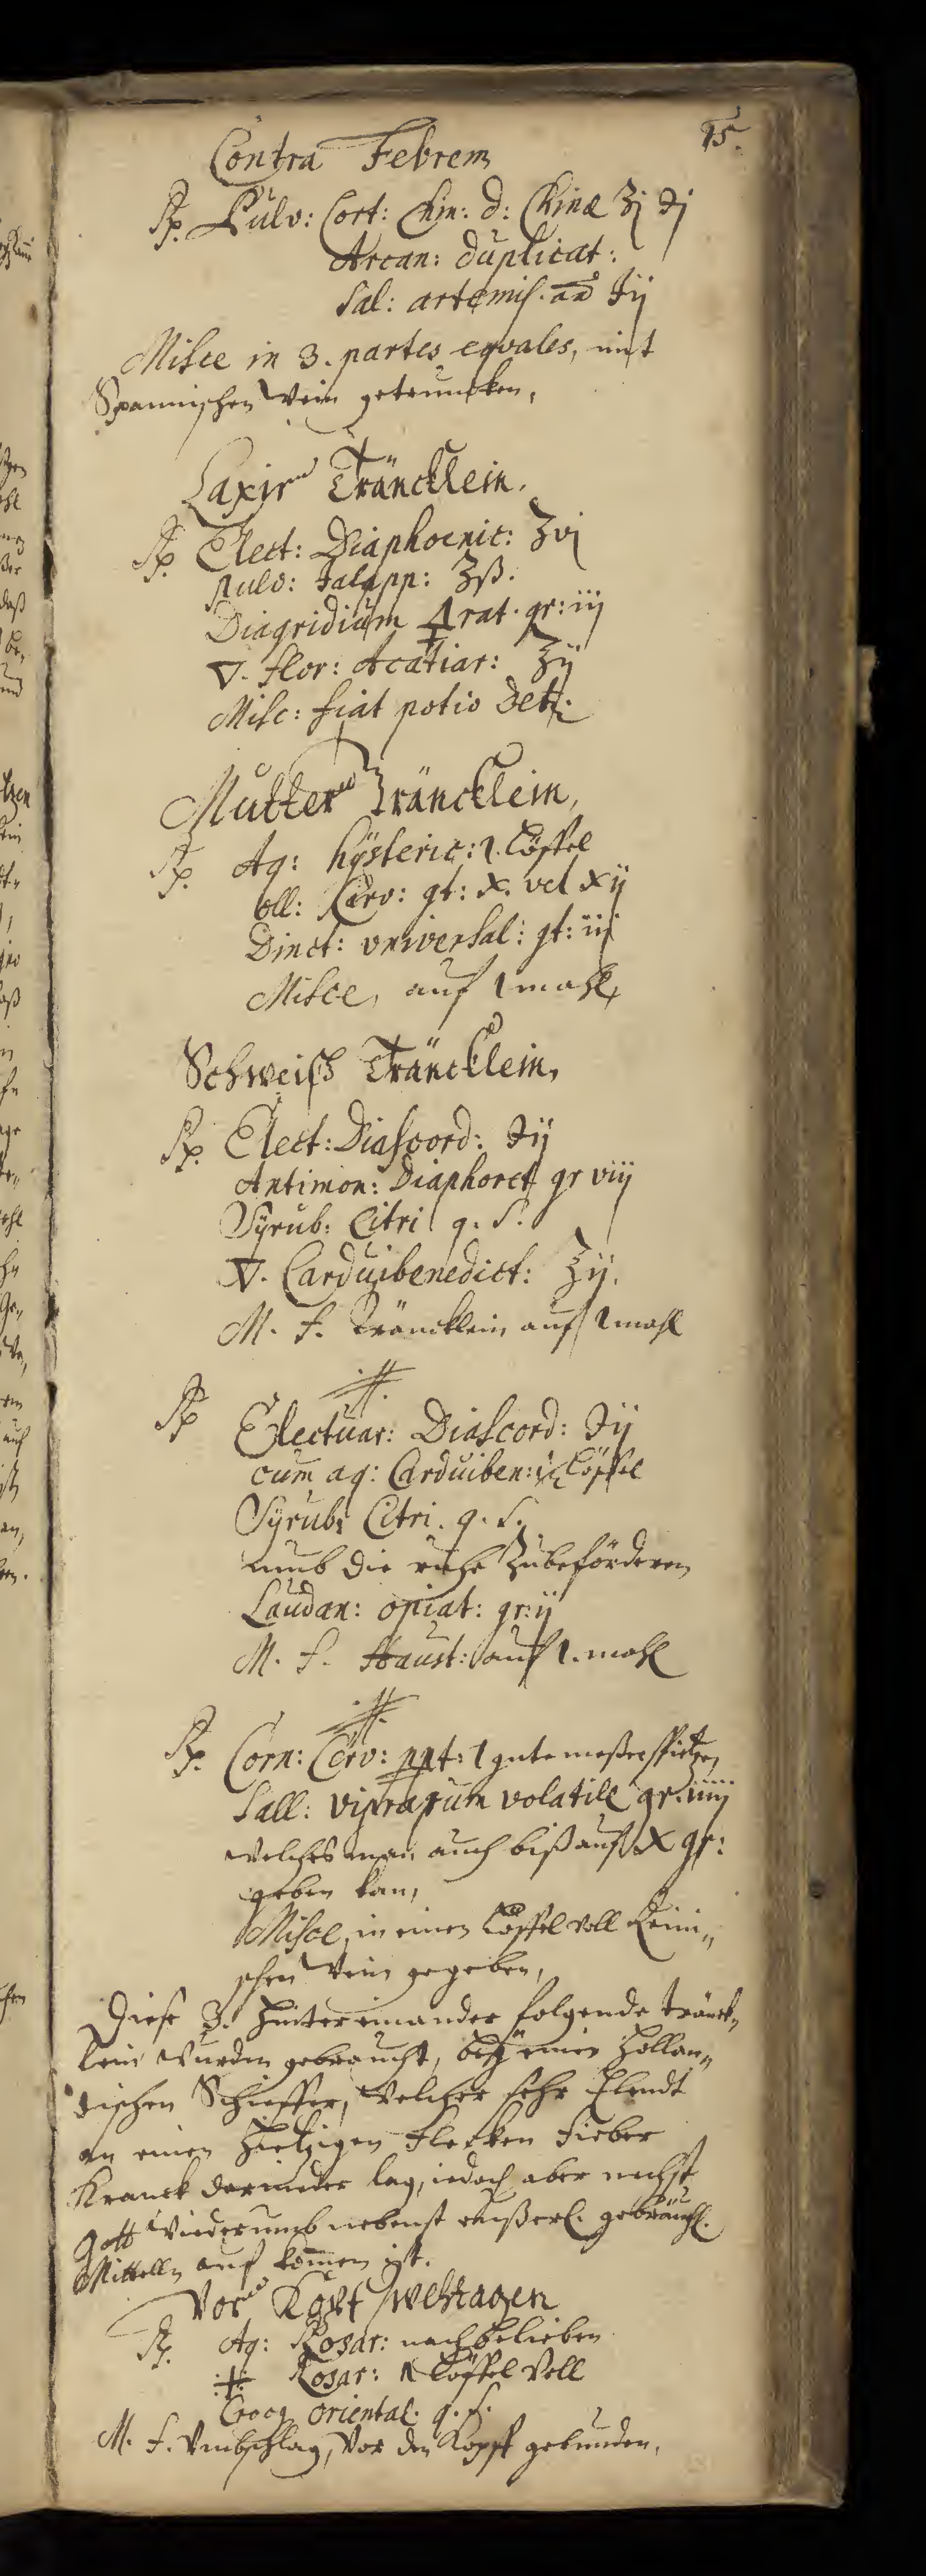 15.
Contra Febrem
℞. Pulv: Cort: Chin: d: Chinæ ʒj ℈j
Arcan: duplicat:
Sal: artemis. aā ℈ij
Misce in 3. partes eqvales, mit
Spannischen Wein getruncken,
Laxir Träncklein.
℞. Elect: Diaphoenic: ʒvj
pulv: Jalapp: ʒß.
Diagridium 🜍rat. gr: iij
🜄. flor: Acatiar: ℥ij
Misc: fiat potio Det:
Mutter Träncklein,
℞. Aq: hÿsteric: 1. Löffel
oll: Cerv: gt: x. vel xij
Dinct: vniversal: gt: iij
Misce, auf 1 mahl,
Schweiß Träncklein,
℞. Elect: Diascord: ℈ij
Antimon: Diaphoret gr viij
Syrub: Citri q. s.
🜄. Carduibenedict: ℥ij.
M. f. Träncklein auf 1 mahl
·//·
℞ Electuar: Diascord: ℈ij
cum aq: Carduiben: Löffel
Syrub: Citri. q. s.
umb die ruhe Zubeförderen
Laudan: opiat: gr: ij
M. f. Haust: auf 1. mahl
·//·
℞. Corn: Cerv: ppt: 1 gute meßerspitzen
Sall: viprarum volatile gr. iiij
welches man auch biß auf X gr:
geben kan,
Misce, in einen Löffel voll Reini„
schen Wein gegeben,
Diese 3. hintereinander folgende tränck„
lein wurden gebraucht, beÿ einen Hollan„
dischen Schieffer, welcher sehr Elendt
an einen hietzigen Flecken Fieber
Kranck darnieder lag, iedoch aber nechst
Gott Wiederumb nebenst eußerl. gebräuchl.
Mittelln auf kom̄en ist.
Vor Kopf wehtagen
℞. Aq: Rosar: nach belieben
·‡· Rosar: 1 Löffel Voll
Croci oriental. q. s.
M. f. Umbschlag, Vor den Kopff gebunden,